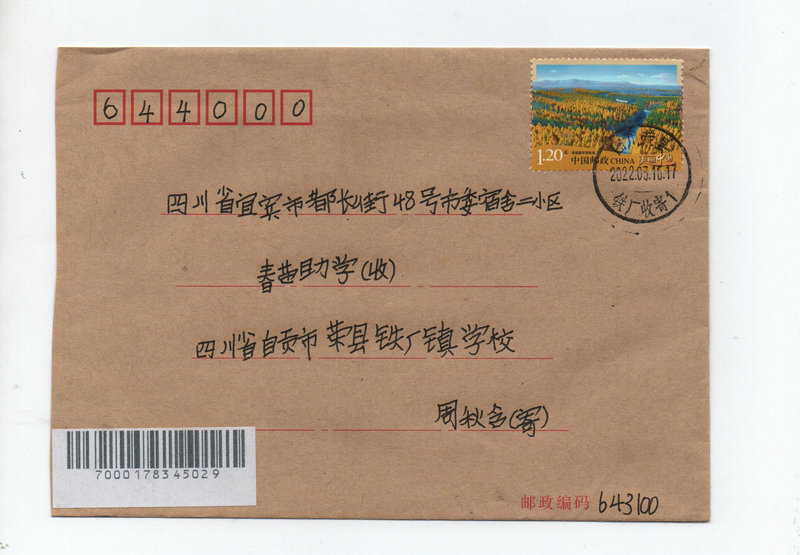 644000
1.20元
中国邮政 CHINA
2022.03.15.17
铁厂收寄1
四川省宜宾市都长街48号市委宿舍二小区
春苗助学(收)
四川省自贡市荣县铁厂镇学校
周秋含(寄)
7000178345029
邮政编码 643100